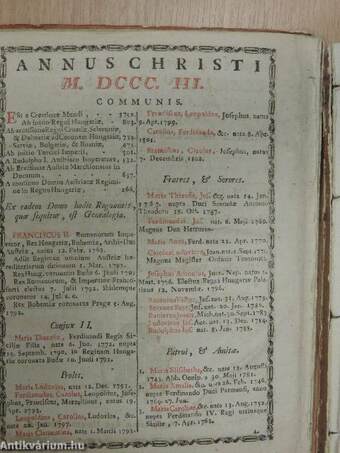 ANNUS CHRISTI
M. DCCC. III.
COMMUNIS.
Est a Creatione Mundi . . 5752.
Ab initio Regni Hungariæ, . . 803.
Ab accessione Regni Croatiæ, Sclavoniæ,
& Dalmatiæ ad Coronam Hungariæ, 712.
Serviæ, Bulgariæ, & Bosniæ,
Ab initio Tertii Imperii,
A Rudolpho I. Austriaco Imperatore, 532.
Ab Erectione Austriæ Marchionum in
Ducatum,
A continuo Domus Austriacæ Regimi-
ne in Regno Hungariæ . . 266.
Ex eadem Domo hodie Regnantis,
quæ sequitur, est Genealogia.
FRANCISCUS II. Romanorum Impe-
rator, Rex Hungariæ, Bohemiæ, Archi-Dux
Austriæ, natus 12. Febr. 1768.
Adiit Regimen omnium Austriæ hæ-
reditariarum ditionum 1. Mart. 1792.
Rex Hung. coronatus Budæ 6. Junii 1792.
Rex Romanorum, & Imperator Franco-
furti electus 5. Julii 1792. solemniter
coronatus 14. Jul. e. a.
Rex Bohemiæ coronatus Pragæ 9. Aug.
1792.
Conjux II.
Maria Theresia, Ferdinandi Regis Si-
ciliæ Filia, nata 6. Jun. 1772. nupta
15. Septemb. 1790. in Reginam Hungariæ
coronata Budæ 10. Junii 1792.
Proles.
Maria Ludovica, nata 12. Dec. 1791.
Ferdinandus, Carolus, Leopoldus, Josephus,
Franciscus, Marcellinus, natus 19.
Apr. 1793.
Leopoldina, Carolina, Ludovica, &c.
nata 22. Jan. 1797.
Maria Clementina, nata 1. Martii 1798.
Franciscus, Leopoldus, Josephus natus
9. Apr. 1799.
Carolina, Ferdinanda, &c. nata 8. Apr.
1801.
Franciscus, Carolus, Josephus, natus
7. Decembris 1802.
Fratres, & Sorores.
Maria Theresia, Jos. &c. nata 14. Jan.
1767. nupta Duci Saxoniæ Antonio
Theodoro 18. Oct. 1787.
Ferdinandus Jos. nat. 6. Maji 1769.
Magnus Dux Hetruriæ.
Maria Anna, Ferd. nata 21. Apr. 1770.
Carolus Ludovicus, Joan. nat. 5. Sept. 1771.
Magnus Magister Ordinis Teutonici.
Josephus Antonius, Joan. Nep. natus 9.
Mart. 1776. Electus Regni Hungariæ Pala-
tinus 12. Novemb. 1796.
Antonius Victor, Jos. nat. 31. Aug. 1779.
Joannes Bapt. Jos. nat. 20. Jan. 1782.
Rainerius Jos. Mich. nat. 30. Sept. 1783.
Ludovicus Jos. Ant. nat. 13. Dec. 1784.
Rudolphus Jos. nat. 8. Jan. 1788.
Patrui, & Amitæ.
Maria Elisabetha, &c. nata 13. Augusti
1743. Abb. Oenip. 20. Maji 1781.
Maria Amalia, &c. nata 26. Febr. 1746.
nupta Ferdinando Duci Parmensi,
1769. 27. Jun.
Maria Carolina, &c. nata 13. Aug. 1752.
nupta Ferdinando IV. Regi utriusque
Siciliæ, 7. Apr. 1768.
Antikvarium.hu